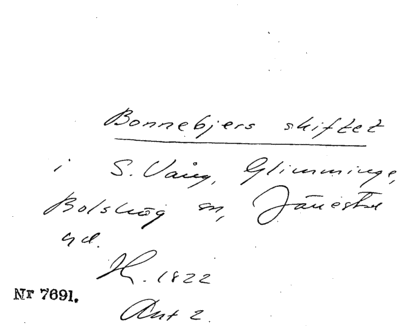 Bonnebjers skiftet
i S. Vång, Glimminge,
Bolshög sn, Järrestad
hd.
H. 1822
Nr 7691.
Ant 2.